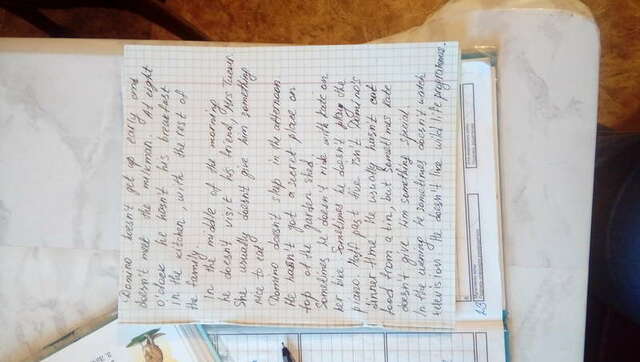 Domino doesn't get up early and
doesn't meet the milkman. At eight
o'clock he hasn't his breakfast
in the kitchen, with the rest of
the family.
In the middle of the morning
he doesn't visit his friend, Mrs Turner.
She usually doesn't give him something
nice to eat
Domino doesn't sleep in the afternoon
He hasn't got a secret place on
top of the garden shed.
Sometimes he doesn't ride with Kate on
her bike. Sometimes he doesn't play the
piano. Half past five isn't Domino's
dinner time. He usually hasn't eat
food from a tin, but sometimes Kate
doesn't give him something special.
In the evening he sometimes doesn't watch
television. He doesn't like wild life programmes.